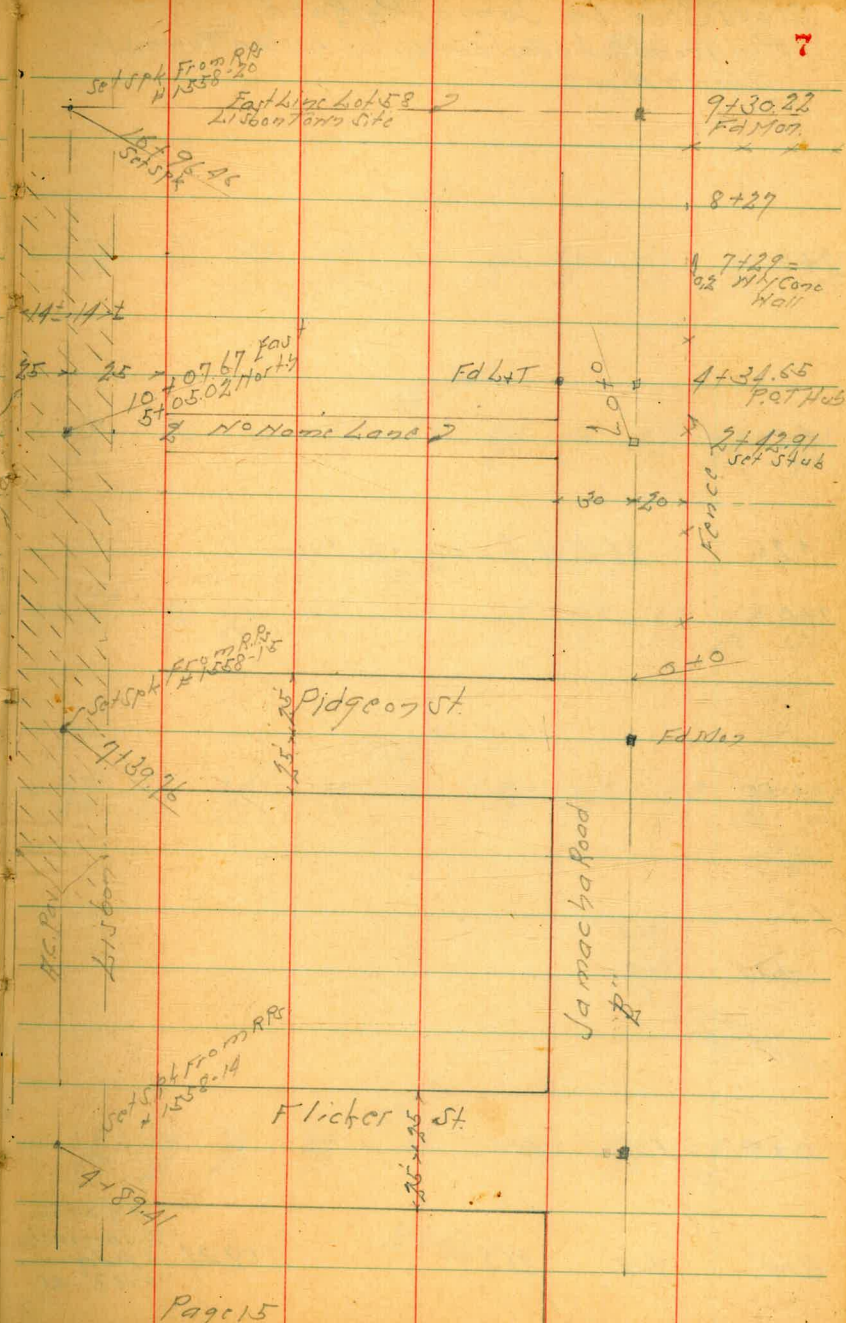 7
Set spk From RPs
# 1558-20
East Line Lot 58
Lisbon Town Site
9+30.22
Fd Mon.
16+96.46
Set spk
8+27
7+29 =
0.2 Wly Conc
Wall
14± 14±
25 25
10+07.67 East
5+05.02 North
Fd L+T
0+0
4+34.65
P.O.T Hub
No Name Lane
2+42.91
Set Stub
30 20
Fence
Set spk From R.Ps
# 1558-15
0+0
Pidgeon St.
25 25
Fd Mon
7+39.76
A.C. Pav
Lisbon
Jamacha Road
"B"
Set Spk From RPs
# 1558-14
Flicker St.
25 25
4+89.41
Page 15